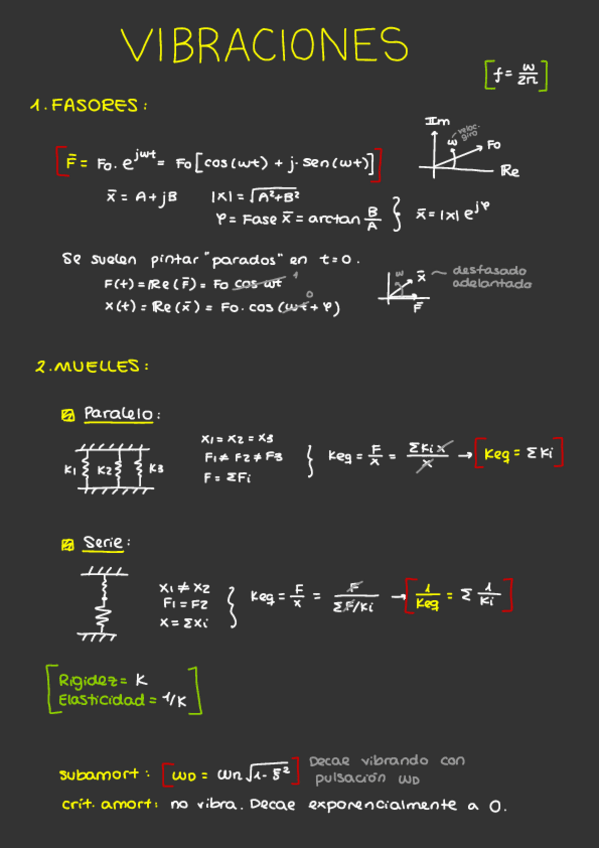 VIBRACIONES
[f = ω/2π]
1. FASORES:
[F̄ = Fo · e^jωt = Fo [cos(ωt) + j · sen(ωt)]]
Im
ω
veloc. giro
Fo
Re
x̄ = A + jB
|x| = √A²+B²
φ = Fase x̄ = arctan B/A
} x̄ = |x| e^jφ
Se suelen pintar "parados" en t=0.
F(t) = Re(F̄) = Fo cos ωt 1
x(t) = Re(x̄) = Fo · cos(ωt + φ) 0
ω
x̄ ~ desfasado
adelantado
F̄
2. MUELLES:
Paralelo:
K1 K2 K3
x1 = x2 = x3
F1 ≠ F2 ≠ F3
F = ΣFi
} Keq = F/x = ΣKi x/x → [Keq = ΣKi]
Serie:
x1 ≠ x2
F1 = F2
x = Σxi
} Keq = F/x = F/ΣF/Ki → [1/Keq = Σ 1/Ki]
[Rigidez = K
Elasticidad = 1/K]
subamort: [ωD = ωn √1-ξ²] Decae vibrando con
pulsación ωD
crít. amort: no vibra. Decae exponencialmente a 0.